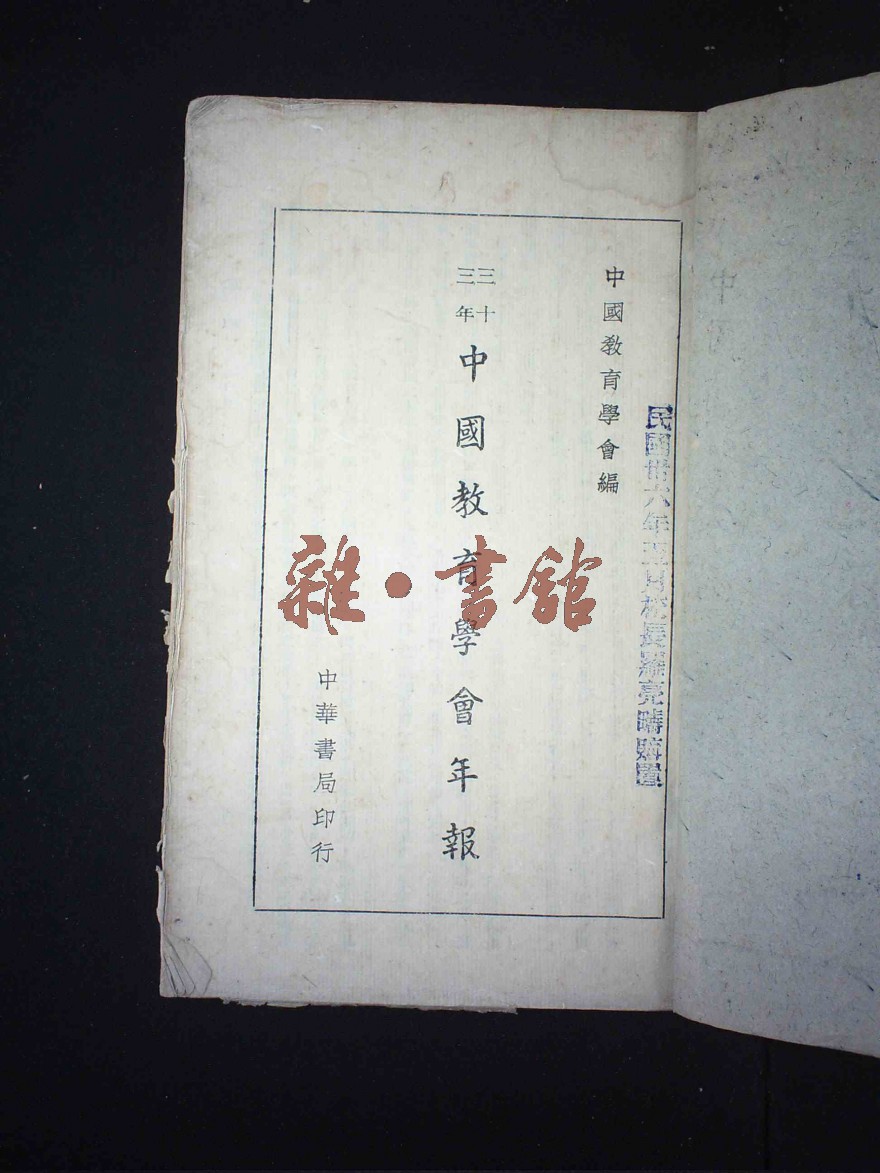 民國卅六年五月校長羅亮疇購置
中國教育學會編
三十
三年
中國教育學會年報
中華書局印行
雜·書館